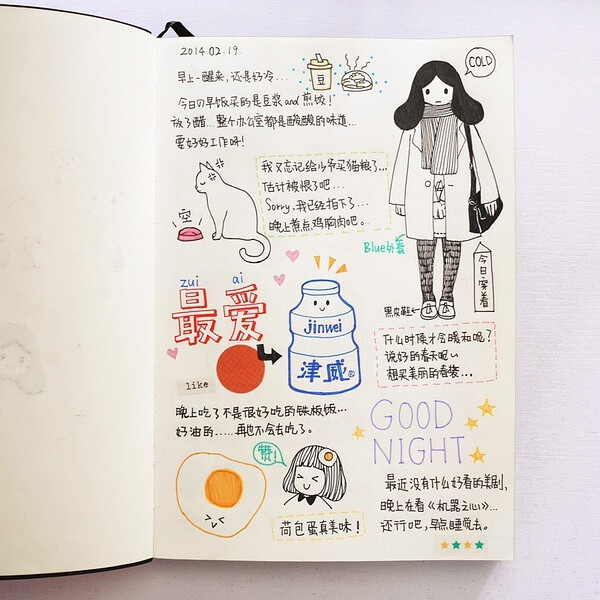 2014.02.19.
COLD
早上一醒来,还是好冷...
豆
今日の早饭买的是豆浆and煎饺!
放了醋...整个办公室都是酸酸的味道...
要好好工作呀!
我又忘记给少爷买猫粮了...
估计被恨了吧...
Sorry,我已经拍下了...
晚上煮点鸡胸肉吧。
空
Blue外套
今日穿着
黑皮鞋
zui ai
最爱
jinwei
津威®
like
什么时候才会暖和呢?
说好的春天呢~
想买美丽的春装...
晚上吃了不是很好吃的铁板饭...
好油的.....再也不会去吃了。
GOOD
NIGHT
赞!
荷包蛋真美味!
最近没有什么好看的美剧,
晚上在看《机器之心》...
还行吧,早点睡觉去。